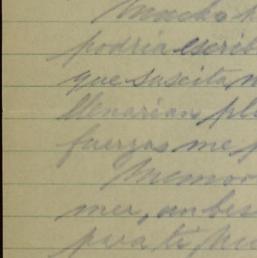 Mucho
podria escrib
que suscita
llenarian pl
fuerzas me p
Memor
mer, un bes
para ti